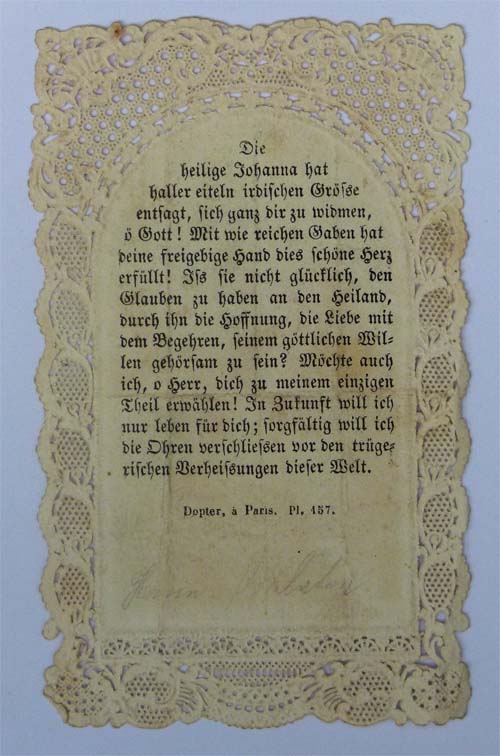 Die
heilige Johanna hat
haller eiteln irdischen Grösse
entsagt, sich ganz dir zu widmen,
ö Gott! Mit wie reichen Gaben hat
deine freigebige Hand dies schöne Herz
erfüllt! Iss sie nicht glücklich, den
Glauben zu haben an den Heiland,
durch ihn die Hoffnung, die Liebe mit
dem Begehren, seinem göttlichen Wil-
len gehörsam zu sein? Möchte auch
ich, o Herr, dich zu meinem einzigen
Theil erwählen! In Zukunft will ich
nur leben für dich; sorgfältig will ich
die Ohren verschliessen vor den trüge-
rischen Verheissungen dieser Welt.
Dopter, à Paris. Pl. 157.